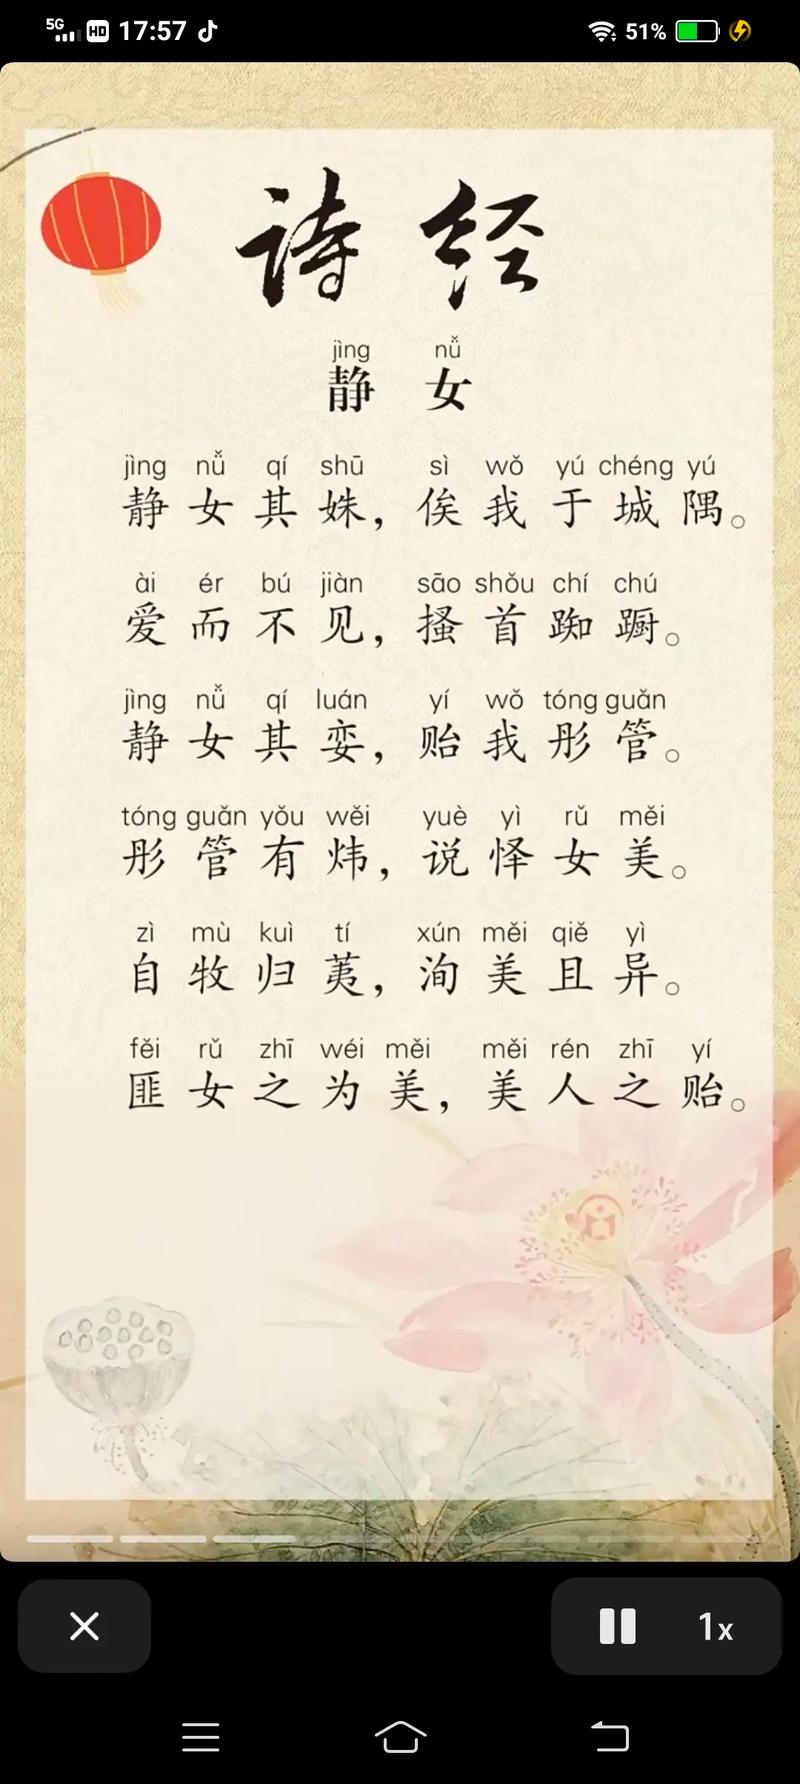 5G HD 17:57 51%
诗经
jìng nǚ
静女
jìng nǚ qí shū sì wǒ yú chéng yú
静女其姝，俟我于城隅。
ài ér bú jiàn sāo shǒu chí chú
爱而不见，搔首踟蹰。
jìng nǚ qí luán yí wǒ tóng guǎn
静女其娈，贻我彤管。
tóng guǎn yǒu wěi yuè yì rǔ měi
彤管有炜，说怿女美。
zì mù kuì tí xún měi qiě yì
自牧归荑，洵美且异。
fěi rǔ zhī wéi měi měi rén zhī yí
匪女之为美，美人之贻。
1x